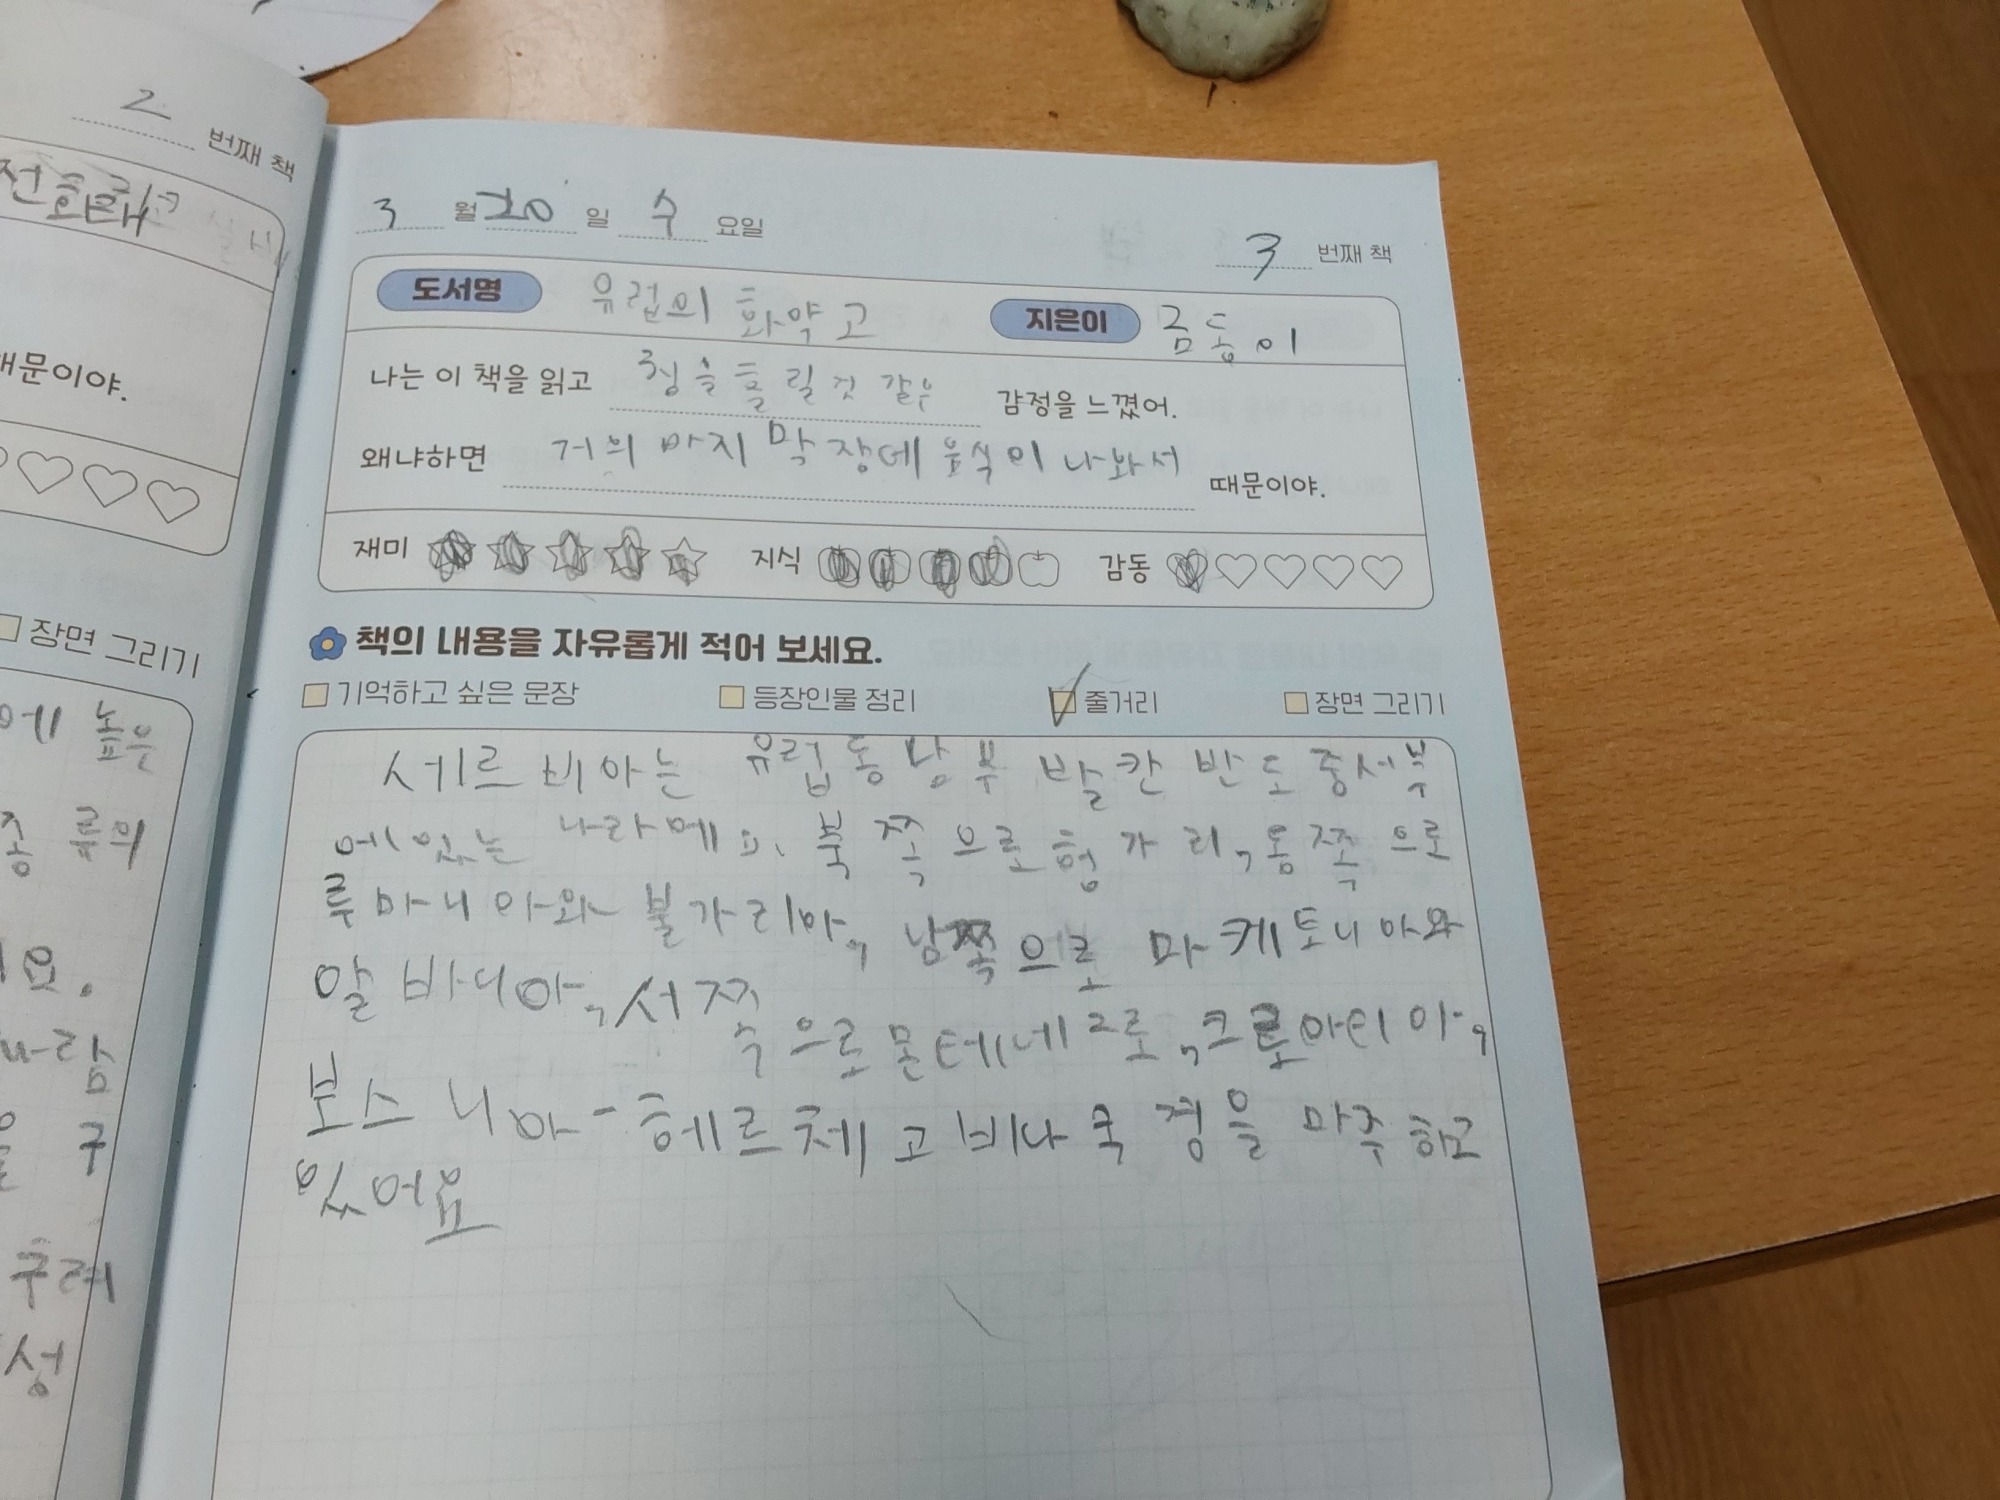 2 번째 책
전화택
때문이야.
장면 그리기
에 높은
종 류의
요.
을 구
추려
성
3 월 20 일 수 요일
3 번째 책
도서명 유럽의 화약고 지은이 금동이
나는 이 책을 읽고 침을 흘릴것 같은 감정을 느꼈어.
왜냐하면 거의 마지막 장에 음식이 나와서 때문이야.
재미 지식 감동
책의 내용을 자유롭게 적어 보세요.
기억하고 싶은 문장 등장인물 정리 줄거리 장면 그리기
세르비아는 유럽 동남부 발칸 반도 중서부
에있는 나라예요. 북쪽으로 헝가리, 동쪽으로
루마니아와 불가리아, 남쪽으로 마케토니아와
알바니아, 서쪽으로 몬테네그로, 크로아티아,
보스니아-헤르체고비나 국경을 마주하고
있어요